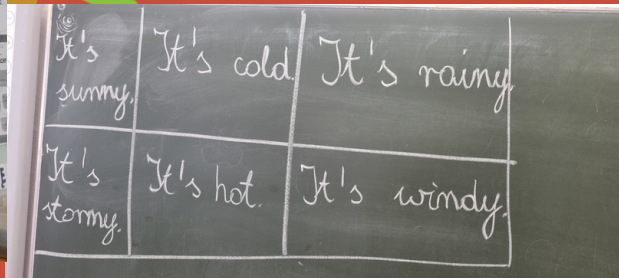 It's
sunny.
It's cold.
It's rainy.
It's
stormy.
It's hot.
It's windy.